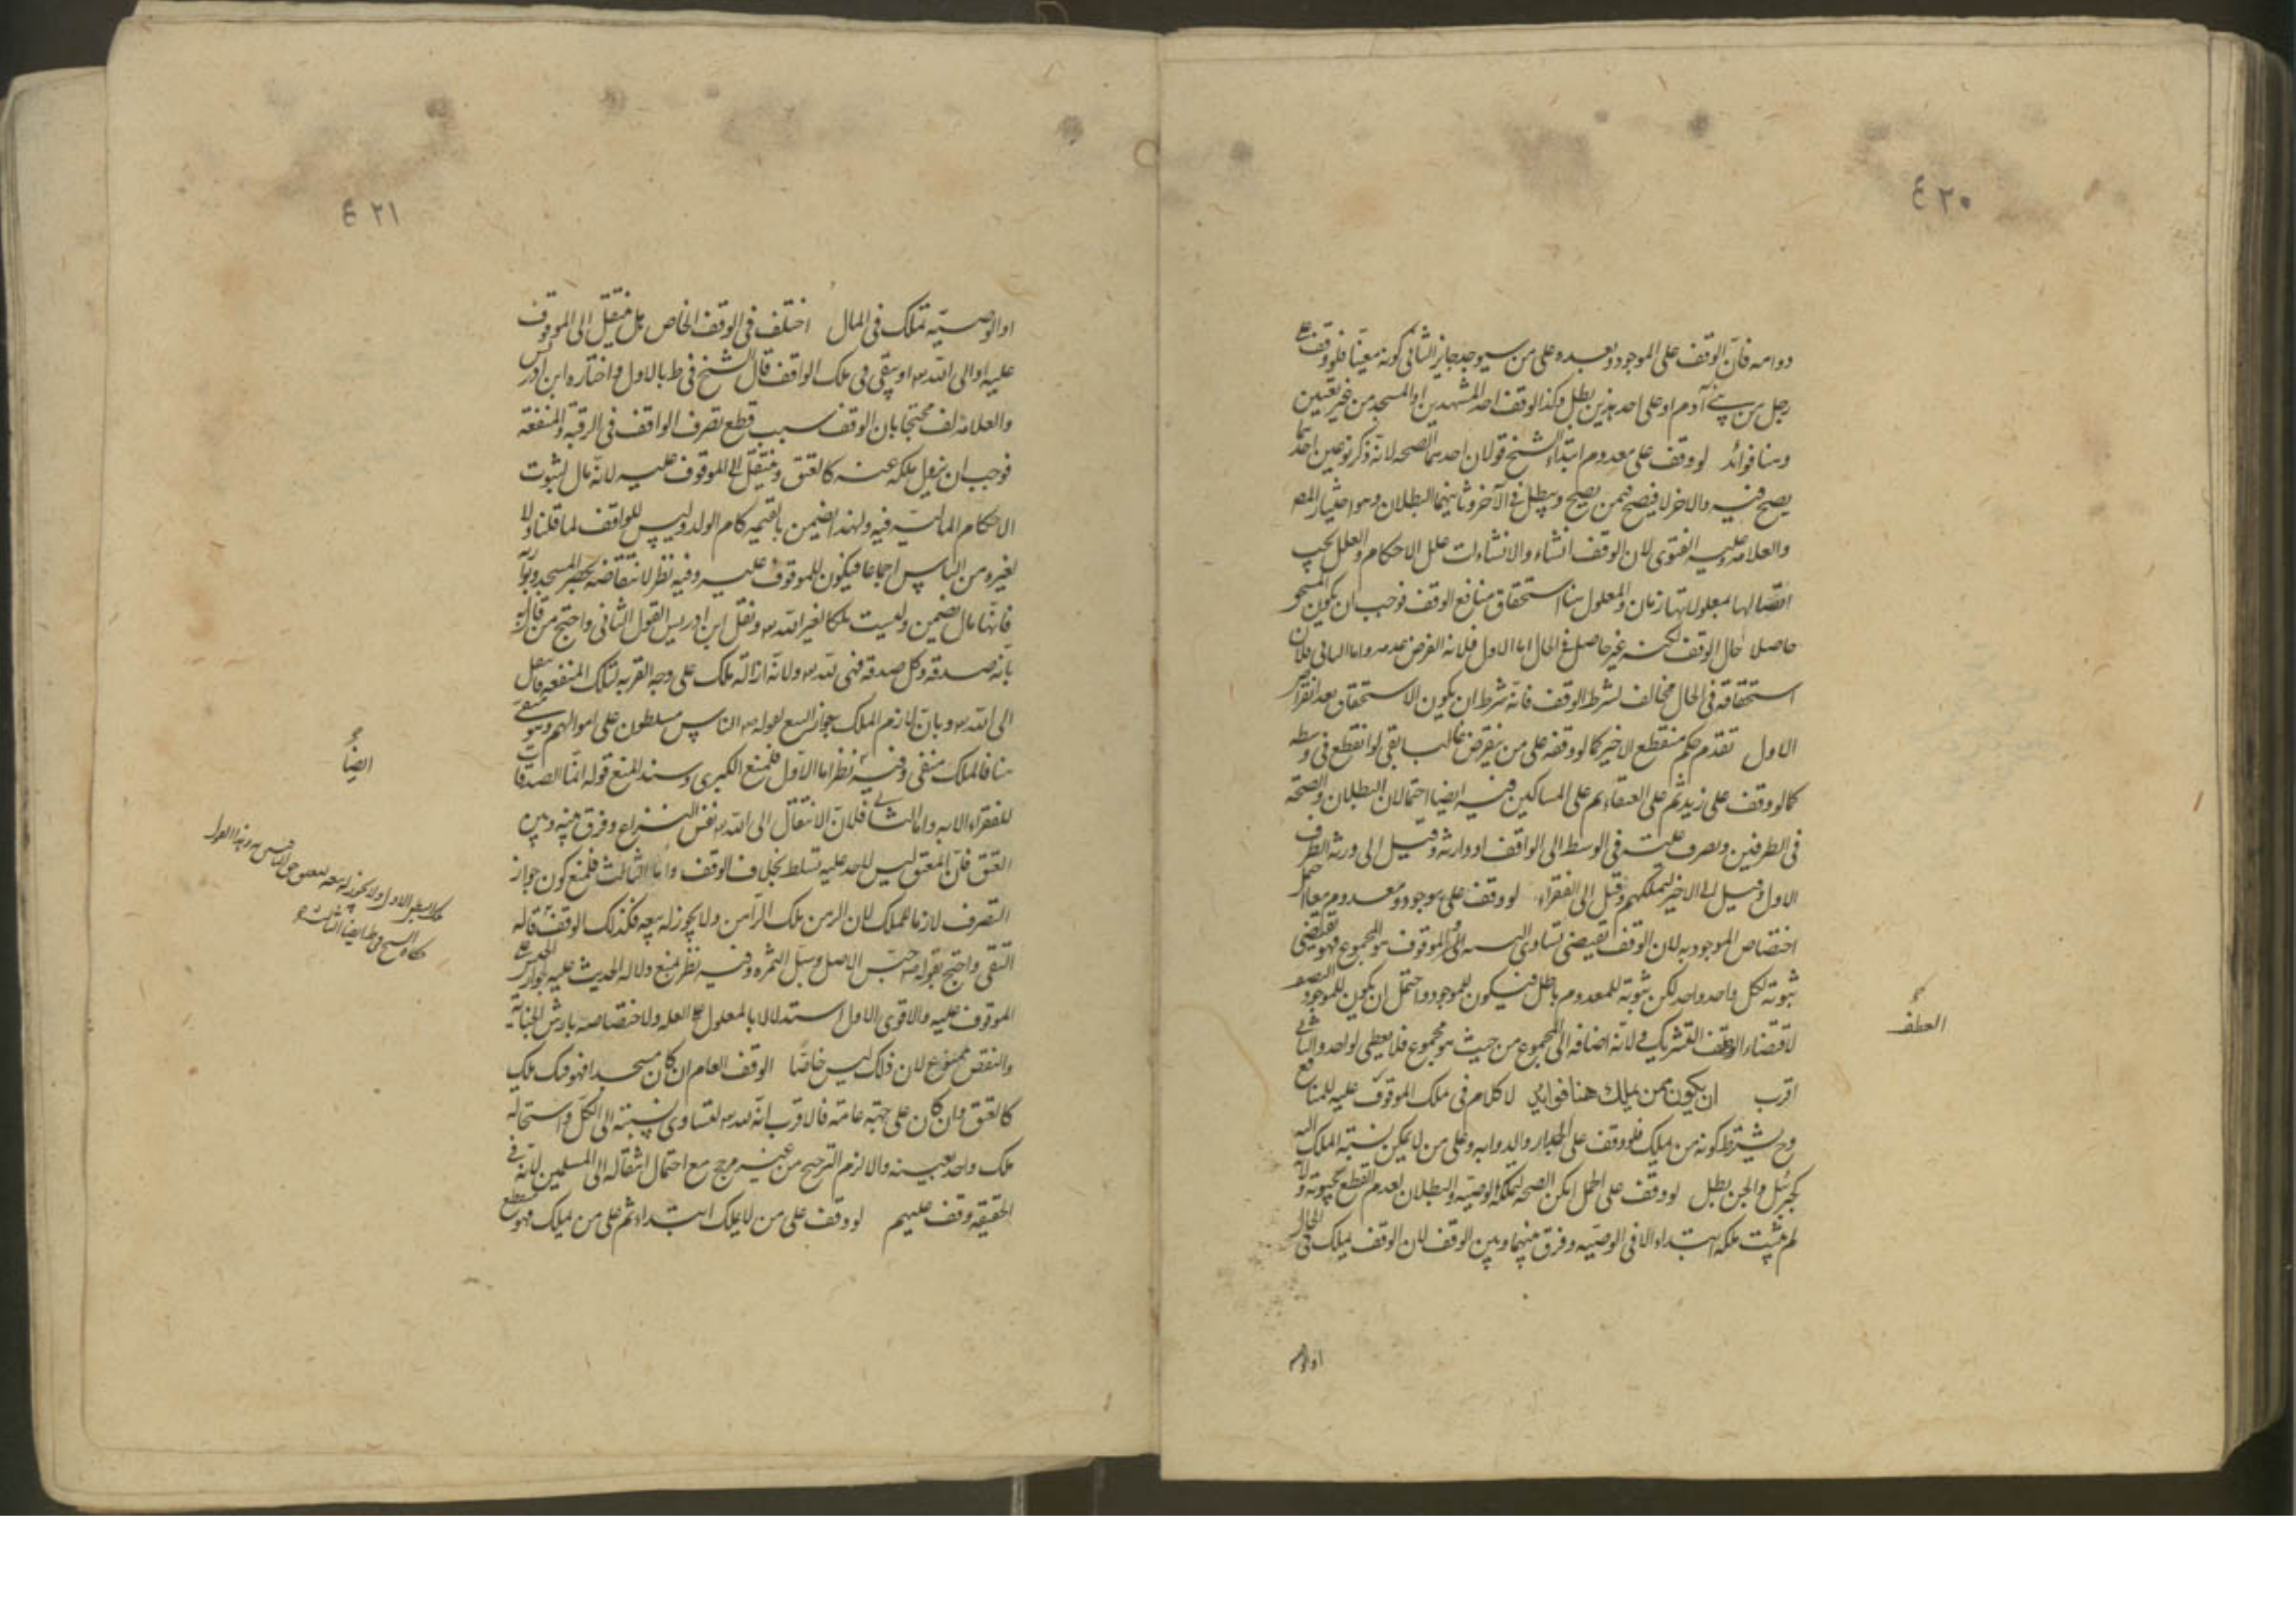 ٤٢٠
دوامه فان الوقف على الموجود وبعده على من سيوجد جايز الثانى كونه معينا فلو وقف على
رجل من بنى آدم او على احد هذين بطل وكذا لو وقف احد المشهدين او المسجد من غير تعيين
وهنا فوائد لو وقف على معدوم ابتداء للشيخ قولان احدهما الصحه لانه ذكر نوعين احدهما
يصح فيه والاخر لا فيصح فيمن يصح ويبطل فى الآخر وثانيهما البطلان وهو اختيار المص
والعلامه وعليه الفتوى لان الوقف انشاء والانشاءات علل الاحكام والعلل يجب
اتصالها بمعلولاتها زمان والمعلول هنا استحقاق منافع الوقف فوجب ان يكون
حاصلا حال الوقف لكنه غير حاصل فى الحال اما الاول فلانه الفرض عدمه واما الثانى فلان
استحقاقه فى الحال مخالف لشرط الوقف فانه شرط ان يكون الاستحقاق بعد انقراض
الاول تقدم حكم منقطع الاخير كما لو وقفه على من ينقرض غالبا بقى لو انقطع فى وسطه
كما لو وقف على زيد ثم على العنقاء ثم على المساكين فيه ايضا احتمالان البطلان والصحه
فى الطرفين وتصرف غلته فى الوسط الى الواقف او وارثه وقيل الى ورثه الطرف
الاول وقيل الى الاخير لتملكهم وقيل الى الفقراء لو وقف على موجود ومعدوم معا احتمل
اختصاص الموجود به لان الوقف يقتضى تساوى النسبه الى والموقوف هو المجموع فهو يقتضى
ثبوته لكل واحد واحد لكن ثبوته للمعدوم باطل فيكون للموجود واحتمل ان يكون للموجود النصف
لاقتضاء الوقف التشريك ولانه اضافه الى المجموع من حيث هو مجموع فلا يعطى لواحد والثانى
اقرب ان يكون ممن يملك هنا فوايد لا كلام فى ملك الموقوف عليه للمنافع
وح يشترط كونه من يملك فلو وقف على الجدار والدوابه وعلى من لا يمكن نسبة الملك اليه
كجبرئيل والجن بطل لو وقف على الحمل امكن الصحه لتملكه الوصيه والبطلان لعدم القطع بحيوته ولانه
لم يثبت ملكه ابتداء الا فى الوصيه وفرق بينهما وبين الوقف لان الوقف يملك فى الحال
العطف
او الوصيه
٤٢١
او الوصيّة تملك فى المال اختلف فى الوقف الخاص هل ينتقل الى الموقوف
عليه او الى الله او يبقى فى ملك الواقف قال الشيخ فى ط بالاول واختاره ابن ادريس
والعلامه فى لف محتجا بان الوقف سبب قطع تصرف الواقف فى الرقبه والمنفعه
فوجب ان يزول ملكه عنه كالعتق وينتقل الى الموقوف عليه لانه مال لثبوت
الاحكام الماليّة فيه ولهذا يضمن بالقيمه كام الولد وليس للواقف لما قلنا ولا
لغيره من الناس اجماعا فيكون للموقوف عليه وفيه نظر لانتقاضه بحصر المسجد وبواريه
فانها مال يضمن وليست ملكا لغير الله ونقل ابن ادريس القول الثانى واحتج من قال به
بانه صدقه وكل صدقه فهى لله ولانه ازالة ملك على وجه القربه لتلك المنفعه فانتقل
الى الله وبان لازم الملك جواز البيع لقوله الناس مسلطون على اموالهم وهو منتفى
هنا فالملك منفى وفيه نظر اما الاول فلمنع الكبرى وسند المنع قوله انما الصدقات
للفقراء الايه واما الثانى فلان الانتقال الى الله نفس النزاع وفرق بينه وبين
العتق فان المعتق ليس لاحد عليه تسلط بخلاف الوقف واما الثالث فلمنع كون جواز
التصرف لازما للملك لان الرهن ملك الراهن ولا يجوز له بيعه فكذلك الوقف قاله
التقى واحتج بقوله حبّس الاصل وسبّل الثمره وفيه نظر لمنع دلاله الحديث عليه لجواز الحبس على
الموقوف عليه والاقوى الاول استدلالا بالمعلول على العله ولاختصاصه بارش الجناية
والنقض ممنوع لان ذلك ليس خاصّا الوقف العام ان كان مسجدا فهو فك ملك
كالعتق وان كان على جهة عامة فالاقرب انه لله لتساوى نسبته الى الكل واستحالة
ملك واحد بعينه والا لزم الترجيح من غير مرجح مع احتمال انتقاله الى المسلمين لانه فى
الحقيقه وقف عليهم لو وقف على من لا يملك ابتداء ثم على من يملك فهو منقطع
ايضا